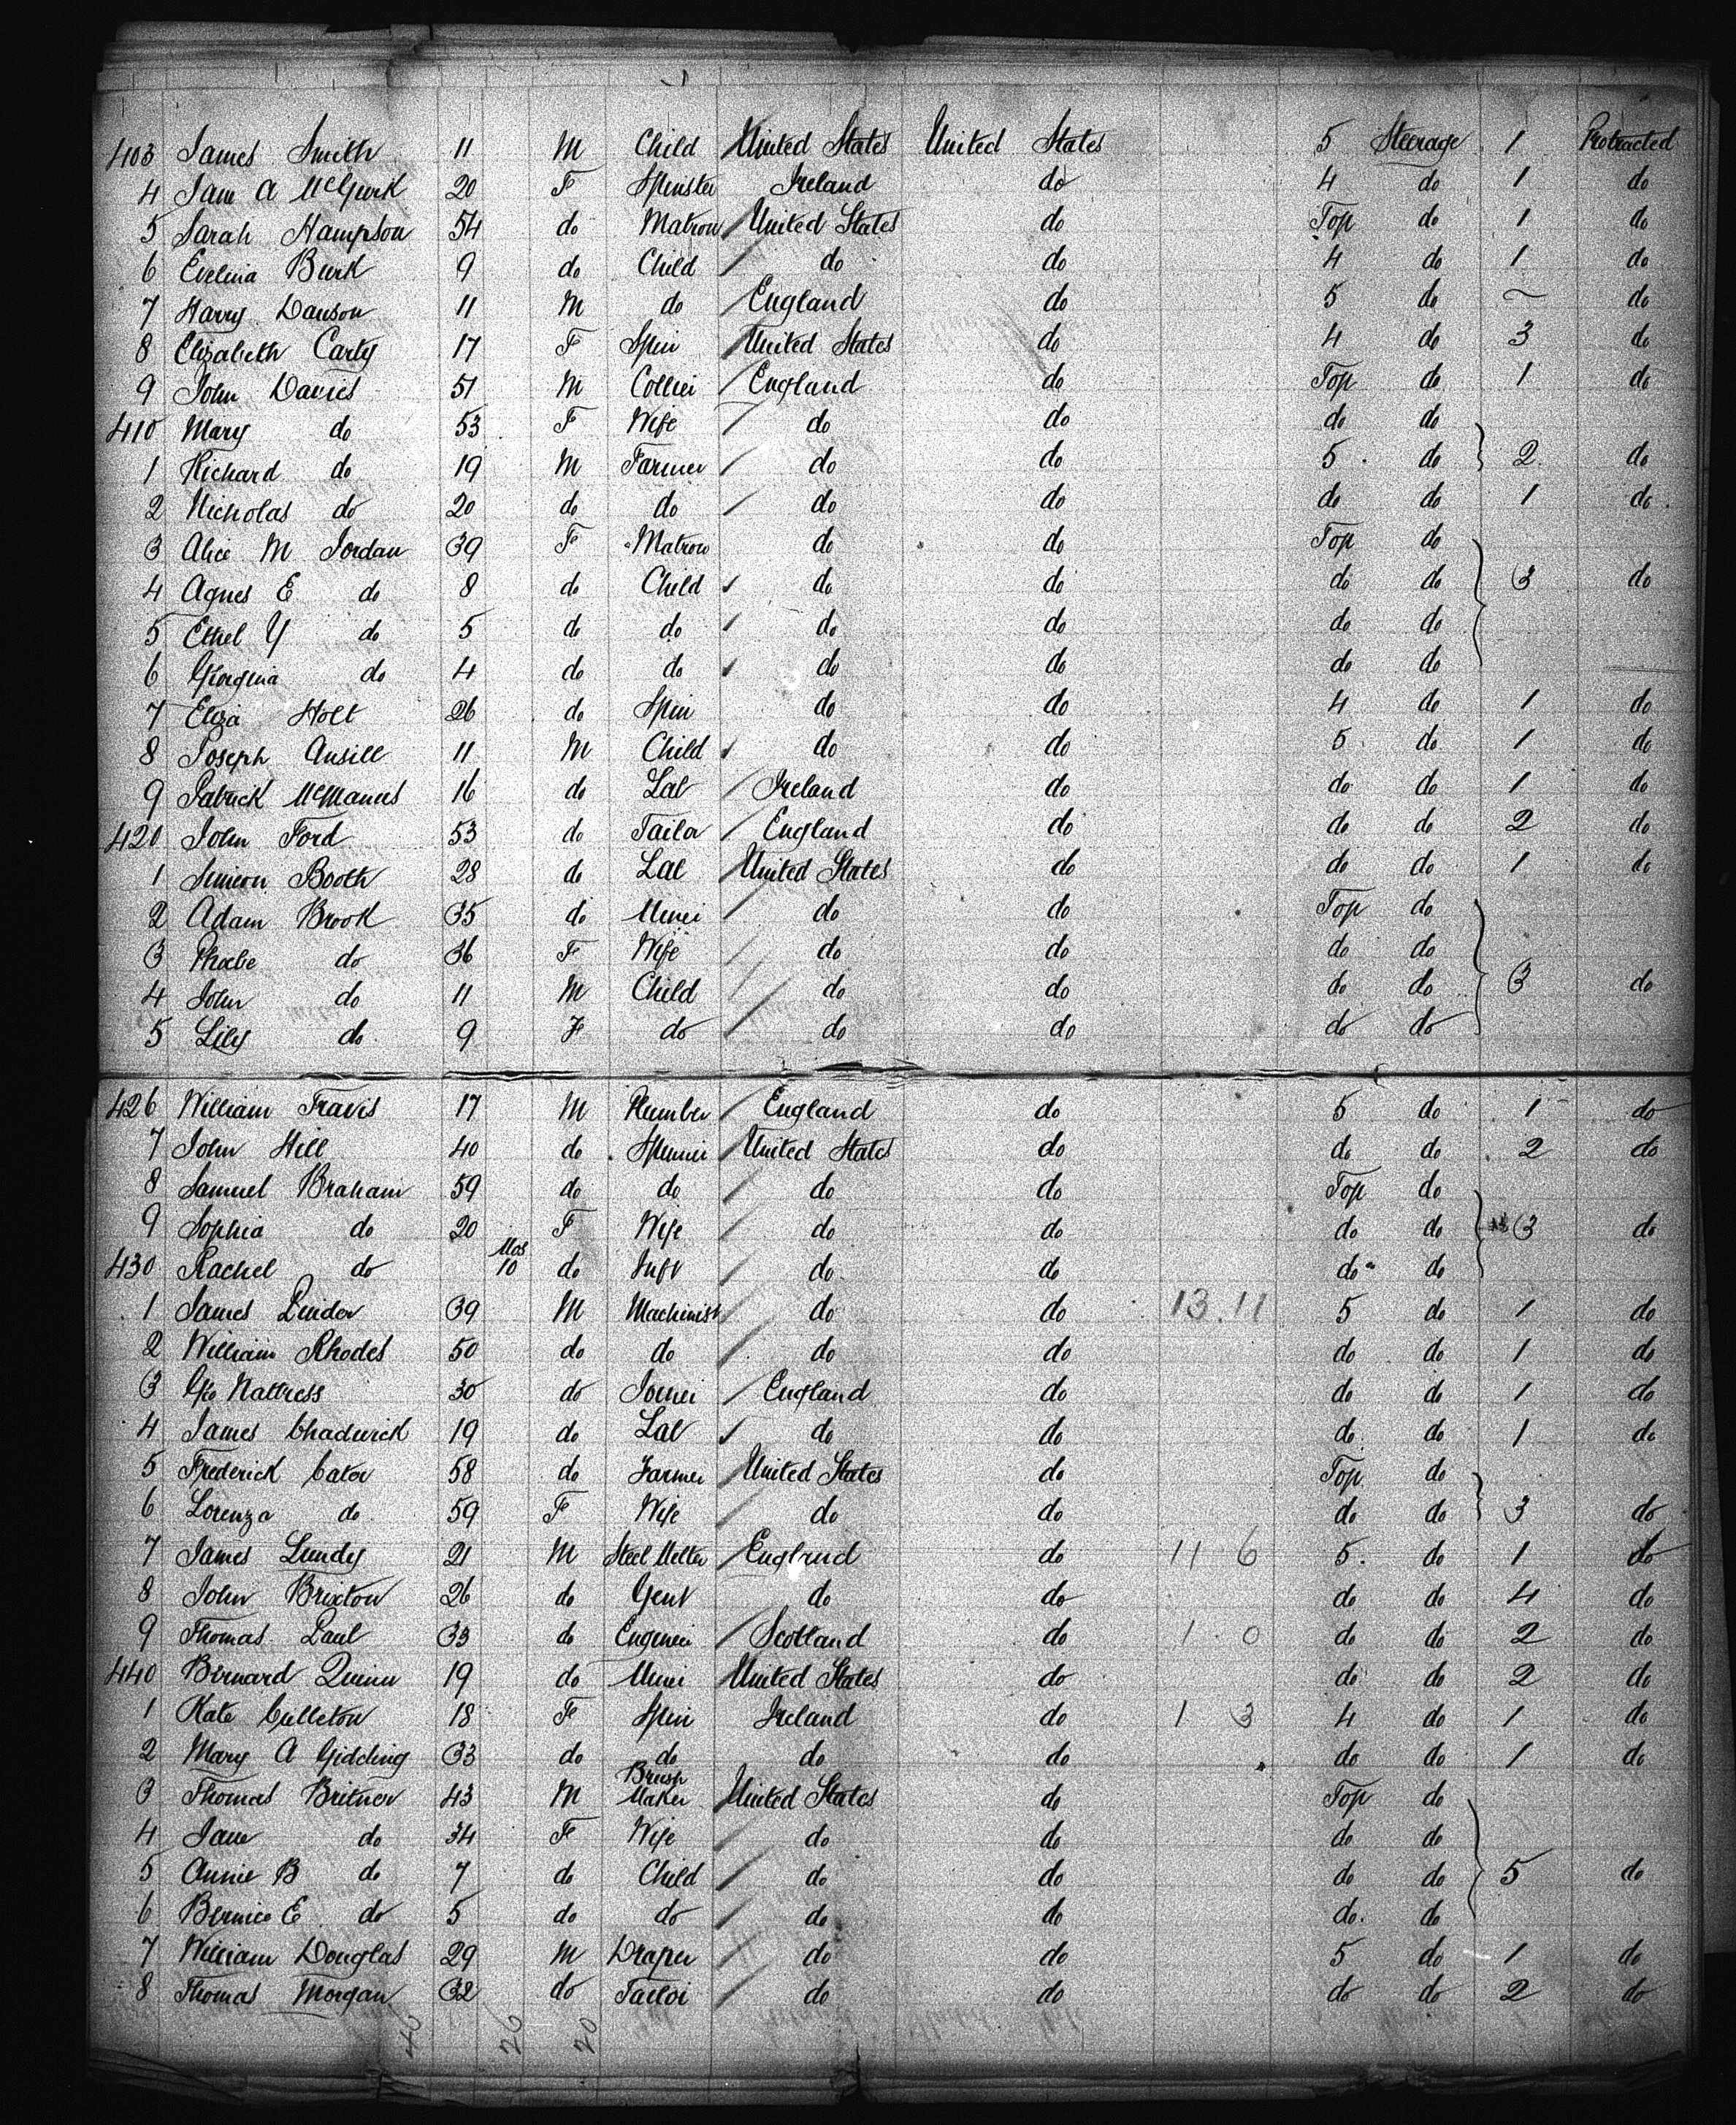 403 James Smith 11 M Child United States United States 5 Steerage 1 Protracted
4 Jane A McGurk 20 F Spinster Ireland do 4 do 1 do
5 Sarah Hampson 54 do Matron United States do Top do 1 do
6 Evelina Burk 9 do Child do do 4 do 1 do
7 Harry Dawson 11 M do England do 5 do ~ do
8 Elizabeth Carty 17 F Spin United States do 4 do 3 do
9 John Davies 51 M Collier England do Top do 1 do
410 Mary do 53 F Wife do do do do
1 Richard do 19 M Farmer do do 5 do 2 do
2 Nicholas do 20 do do do do do do 1 do
3 Alice M Jordan 39 F Matron do do Top do
4 Agnes E do 8 do Child do do do do 3 do
5 Ethel Y do 5 do do do do do do
6 Georgina do 4 do do do do do do
7 Eliza Holt 26 do Spin do do 4 do 1 do
8 Joseph Ansill 11 M Child do do 5 do 1 do
9 Patrick McManus 16 do Lab Ireland do do do 1 do
420 John Ford 53 do Tailor England do do do 2 do
1 Simeon Booth 28 do Lab United States do do do 1 do
2 Adam Brook 35 do Miner do do Top do
3 Phoebe do 36 F Wife do do do do
4 John do 11 M Child do do do do 3 do
5 Lily do 9 F do do do do do
426 William Travis 17 M Plumber England do 5 do 1 do
7 John Hill 40 do Spinner United States do do do 2 do
8 Samuel Braham 59 do do do do Top do
9 Sophia do 20 F Wife do do do do 3 do
430 Rachel do Mos 10 do Inft do do do do
1 James Pinder 39 M Machinist do do 13.11 5 do 1 do
2 William Rhodes 50 do do do do do do 1 do
3 Geo Nattress 30 do Joiner England do do do 1 do
4 James Chadwick 19 do Lab do do do do 1 do
5 Frederick Cator 58 do Farmer United States do Top do
6 Lorenza do 59 F Wife do do do do 3 do
7 James Lundy 21 M Steel Melter England do 11 6 5 do 1 do
8 John Brixton 26 do Gent do do do do 4 do
9 Thomas Paul 33 do Engineer Scotland do 1 0 do do 2 do
440 Bernard Quinn 19 do Miner United States do do do 2 do
1 Kate Culleton 18 F Spin Ireland do 1 3 4 do 1 do
2 Mary A Gidding 33 do do do do do do 1 do
3 Thomas Britner 43 M Brush Maker United States do Top do
4 Jane do 34 F Wife do do do do
5 Annie B do 7 do Child do do do do 5 do
6 Bernice E do 5 do do do do do do
7 William Douglas 29 M Draper do do 5 do 1 do
8 Thomas Morgan 32 do Tailor do do do do 2 do
40 26 20